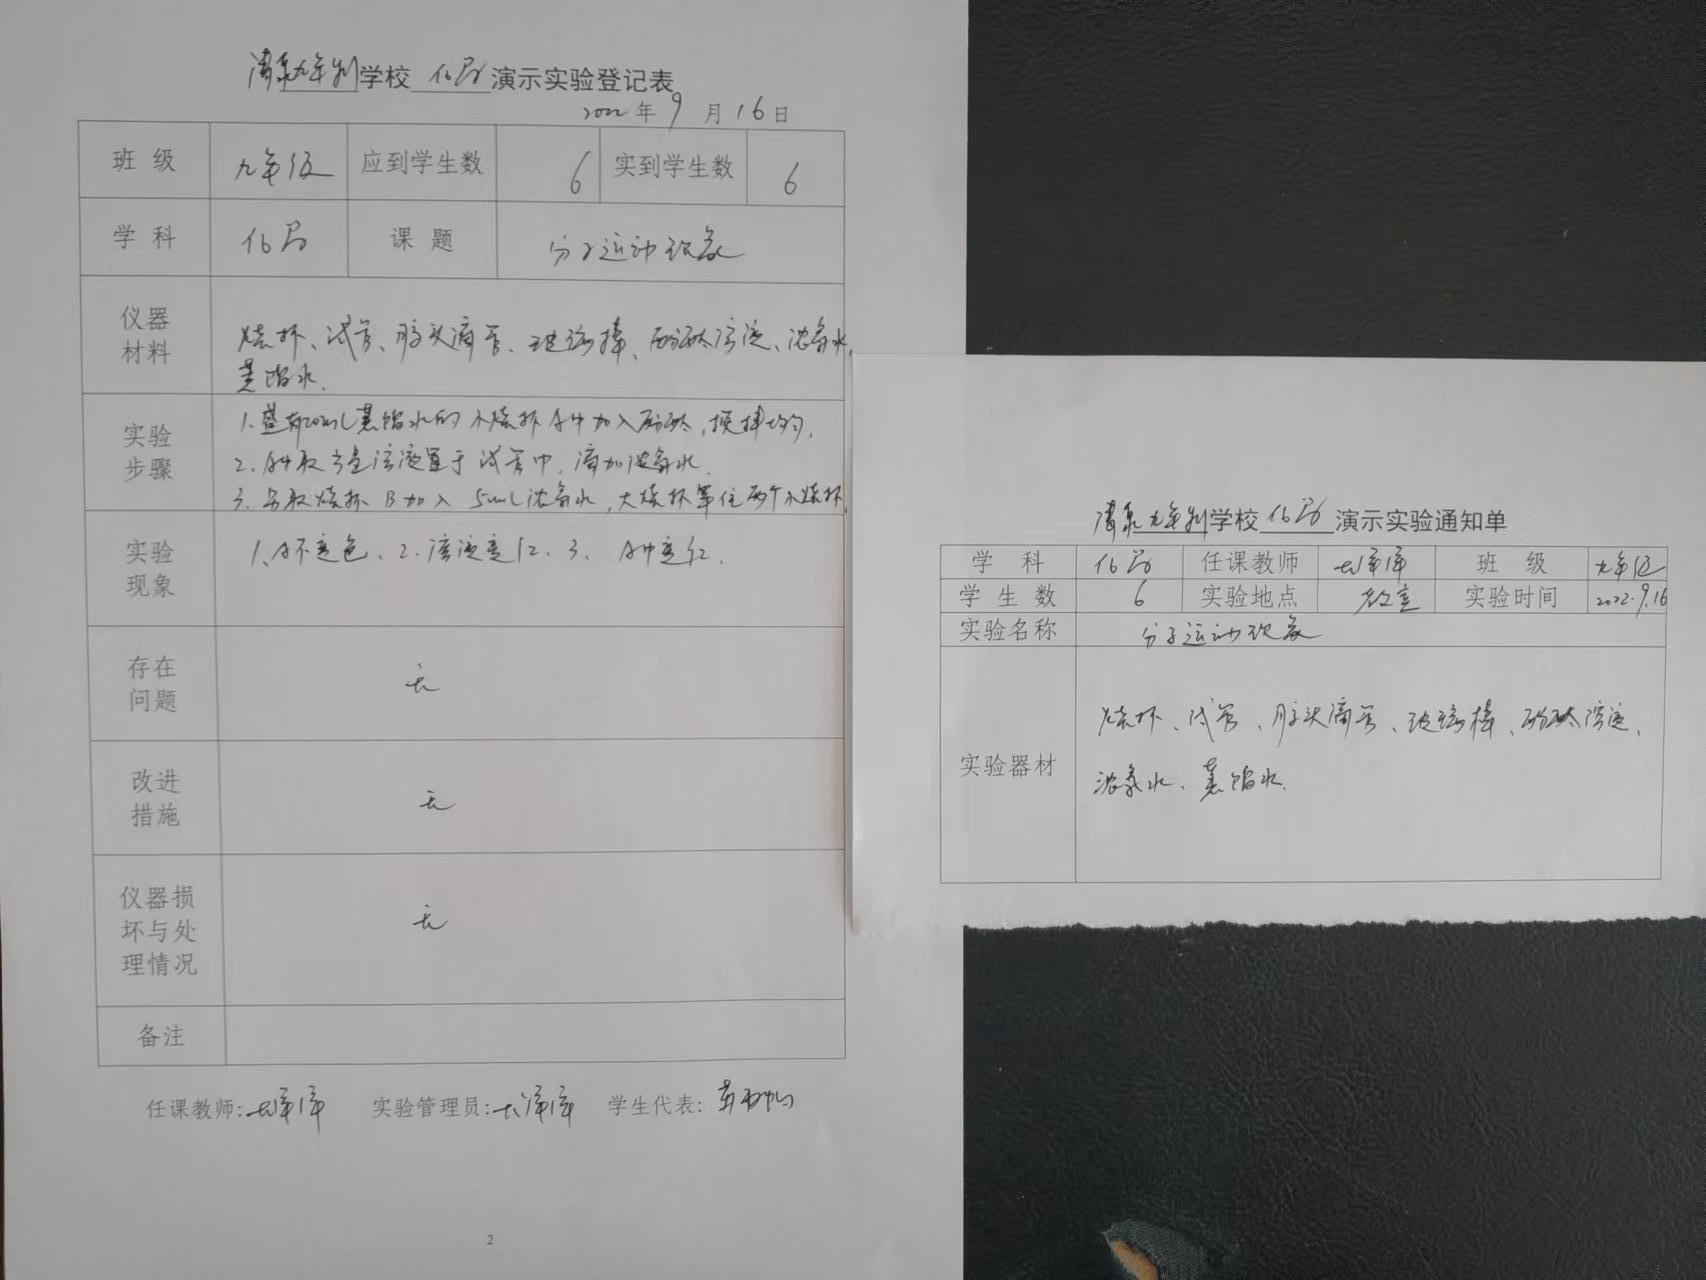 清泉九年制学校 化学 演示实验登记表
2022年9月16日
班级 九年级 应到学生数 6 实到学生数 6
学科 化学 课题 分子运动现象
仪器材料 烧杯、试管、胶头滴管、玻璃棒、酚酞溶液、浓氨水、
蒸馏水.
实验步骤 1.盛有20mL蒸馏水的小烧杯A中加入酚酞,搅拌均匀.
2.A中取少量溶液置于试管中,滴加浓氨水.
3.另取烧杯B加入5mL浓氨水,大烧杯罩住两个小烧杯.
实验现象 1、A不变色、2、溶液变红、3、A中变红.
存在问题 无
改进措施 无
仪器损坏与处理情况 无
备注
任课教师: 实验管理员: 学生代表:
2
清泉九年制学校 化学 演示实验通知单
学科 化学 任课教师 班级 九年级
学生数 6 实验地点 教室 实验时间 2022.9.16
实验名称 分子运动现象
实验器材 烧杯、试管、胶头滴管、玻璃棒、酚酞溶液、
浓氨水、蒸馏水.